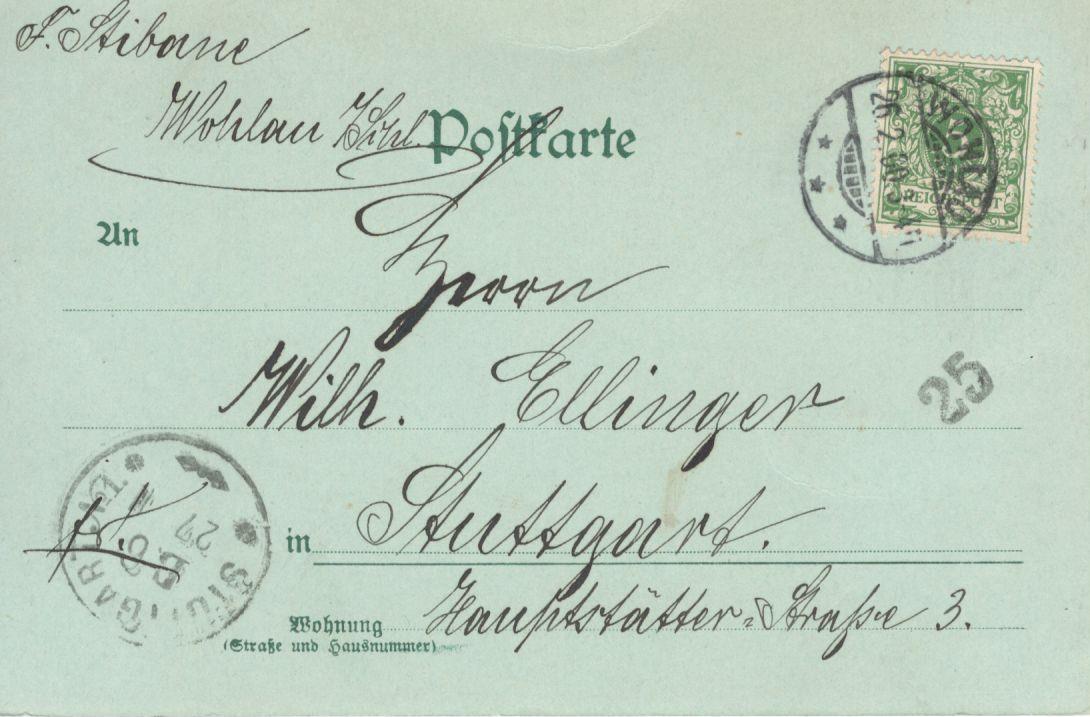 F. Stibane
Wohlau
Postkarte
WOHLAU
REICHSPOST
An
Herrn
Wilh. Ellinger
25
in Stuttgart.
STUTTGART
27
Wohnung Hauptstätter-Straße 3.
(Straße und Hausnummer)